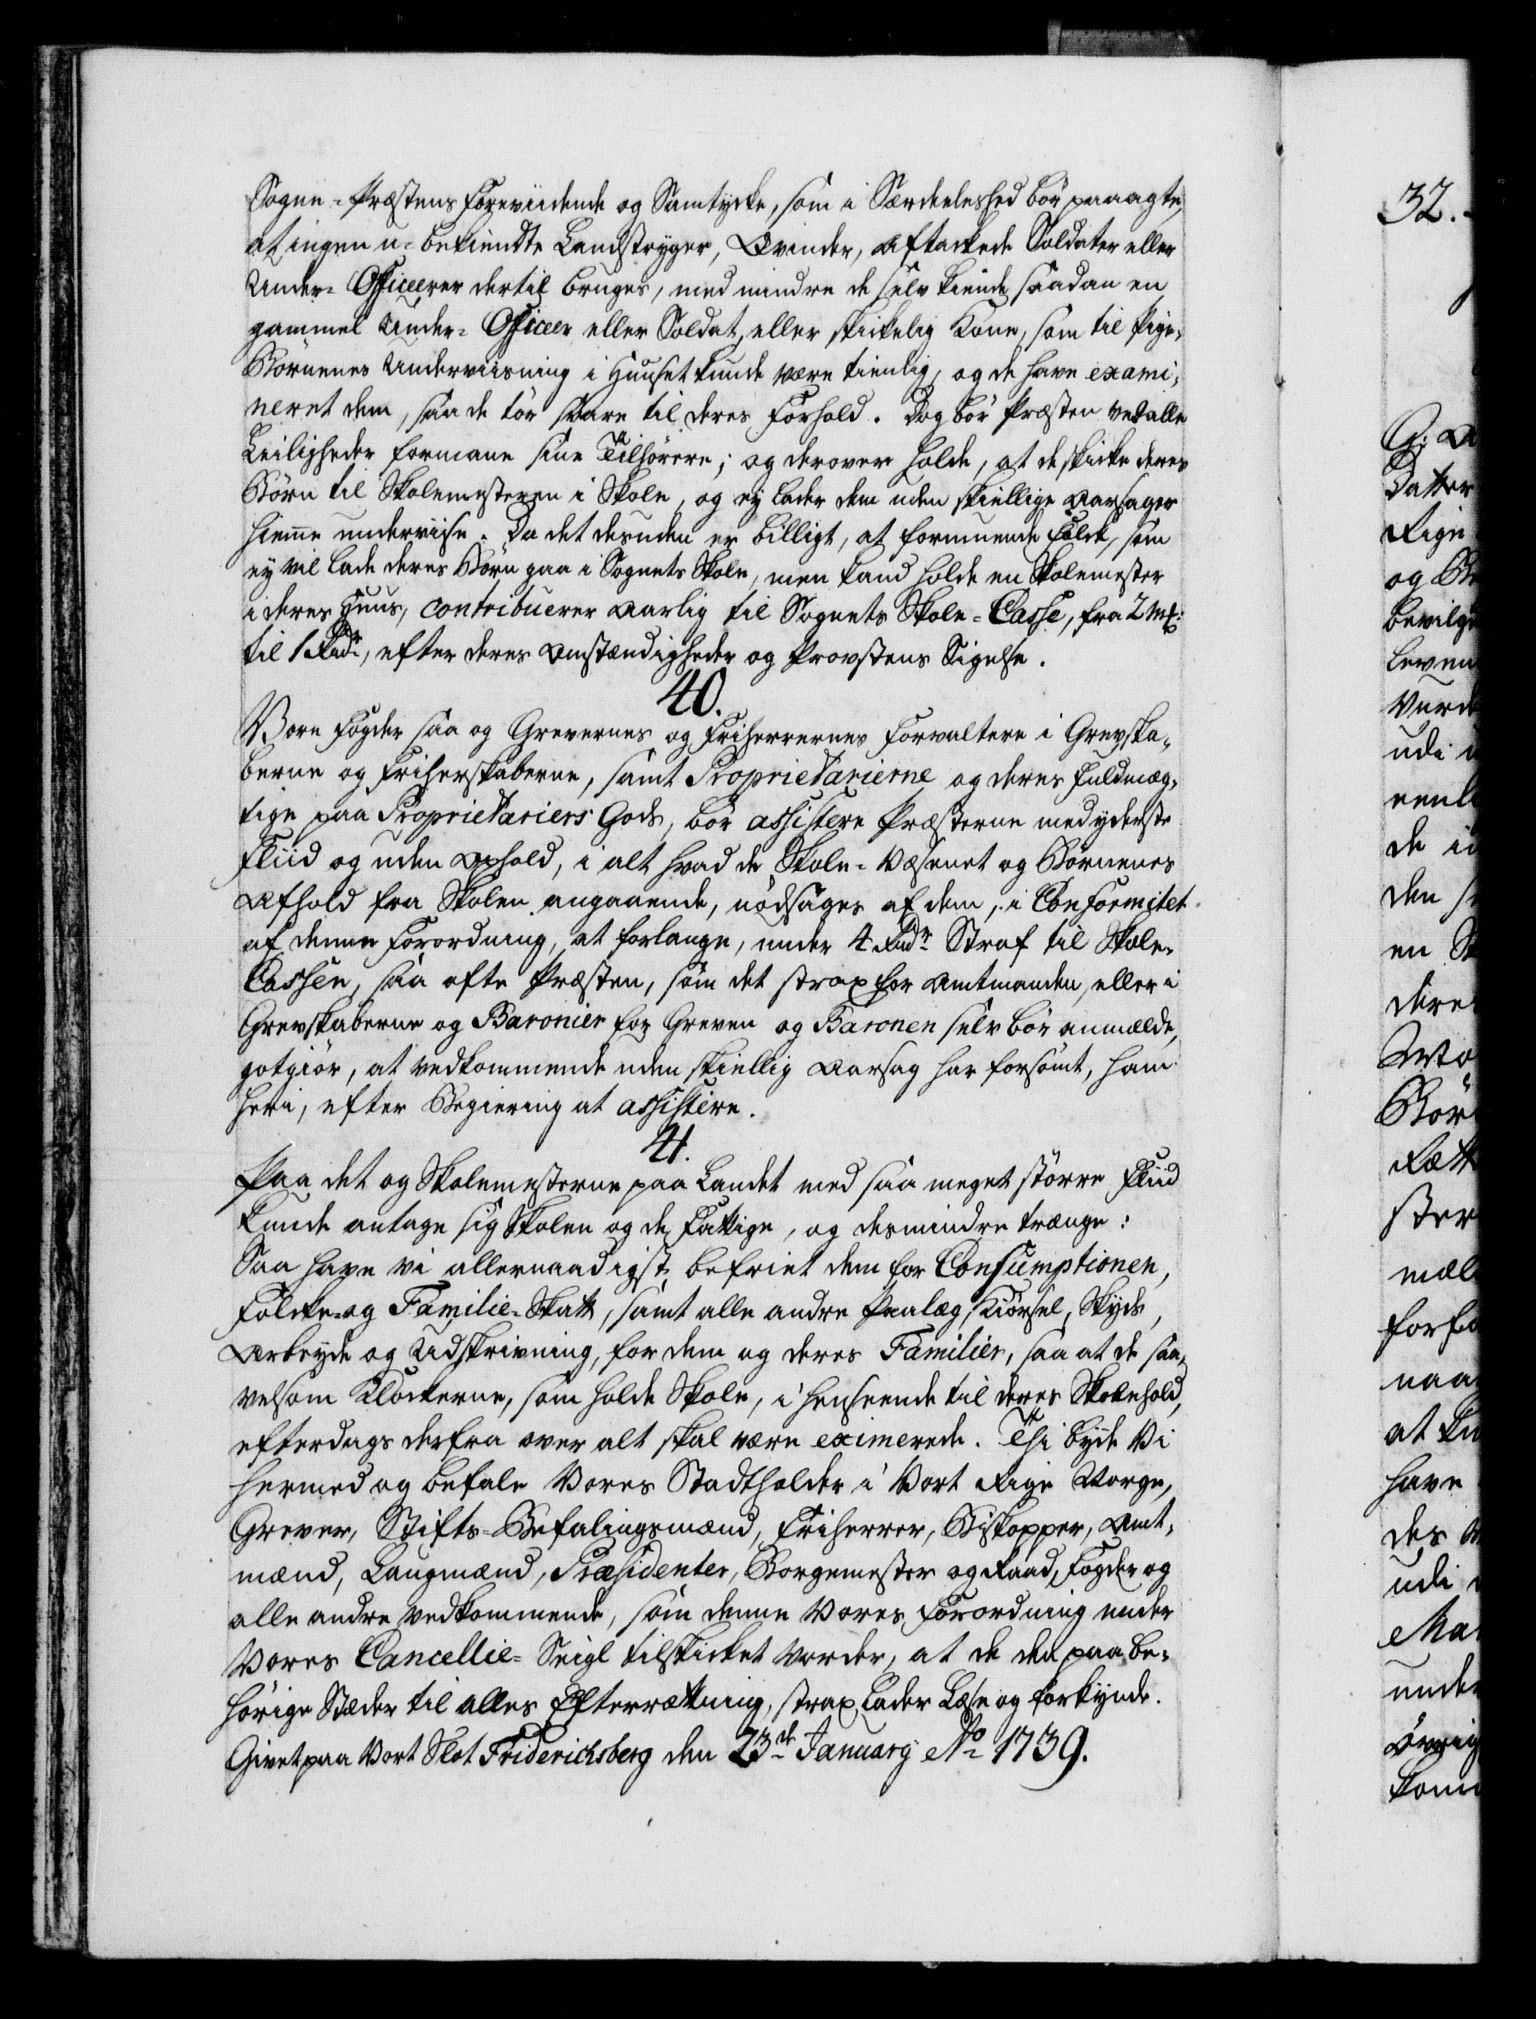 Sogne-Præstens Foreviidende og Samtycke, som i Særdeeleshed bør paaagte,
at ingen u-bekiendte Landstryger, Qvinder, Aftackede Soldater eller
Under-Officerer dertil bruges, med mindre de selv kiende saadan en
gammel Under-Officeer eller Soldat, eller skickelig Kone, som til Pige-
Børnenes Underviisning i Huuset kunde være tienlig, og de have exami-
neret dem, saa de tør svare til deres Forhold. Dog bør Præsten ved alle
Leiligheder formane sine Tilhørere; og derover holde, at de skicke deres
Børn til Skolemesteren i Skole, og ey lader dem uden skiellige Aarsager
hieme underviise. Da det desuden er billigt, at formuende Folck, som
ey vil lade deres Børn gaa i Sognets Skole, men kand holde en Skolemester
i deres Huus, contribuerer Aarlig til Sognets Skole-Casse, fra 2 Mk:
til 1 Rdr, efter deres Omstændigheder og Provstens Sigelse.
40.
Vore Fogder saa og Grevernes og Friherrernes Forvaltere i Grevska-
berne og Friherskaberne, samt Proprietarierne og deres Fuldmæg-
tige paa Proprietariers Gods, bør assistere Præsterne med yderste
Fliid og uden Ophold, i alt hvad de Skole-Væsenet og Børnenes
Afhold fra Skolen angaaende, nødsages af dem, i Conformitet
af denne Forordning, at forlange, under 4 Rdr Straf til Skole-
Cassen, saa ofte Præsten, som det strax for Amtmanden, eller i
Grevskaberne og Baronier for Greven og Baronen selv bør anmælde,
gotgiør, at vedkommende uden skiellig Aarsag har forsømt, ham
heri, efter Begiering at assistere.
41.
Paa det og Skolemesterne paa Landet med saa meget større Fliid
kunde antage sig Skolen og de Fattige, og desmindre trænge:
Saa have vi allernaadigst befriet dem for Consumptionen,
Folcke- og Familie-Skatt, samt alle andre Paalæg, Kiørsel, Skyds,
Arbeyde og Udskrivning, for dem og deres Familier, saa at de saa-
velsom Klockerne, som holde Skole, i henseende til deres Skolehold,
efterdags derfra over alt skal være eximerede. Thi byde Vi
hermed og befale Vores Stadtholder i Vort Rige Norge,
Grever, Stifts-Befalingsmænd, Friherrer, Biskopper, Amt-
mænd, Laugmænd, Præsidenter, Borgemester og Raad, Fogder og
alle andre vedkommende, som denne Vores Forordning under
Vores Cancellie-Seigl tilskicket vorder, at de den paa be-
hørige Stæder til alles Efterrættning, strax lader læse og forkynde.
Givet paa Vort Slot Friderichsberg den 23de January Ao 1739.
32.